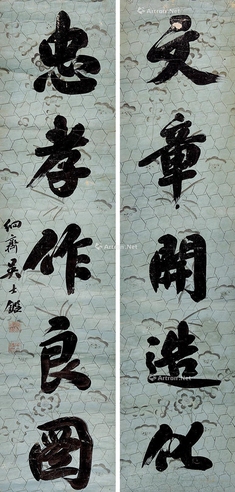 文章開造化
忠孝作良圖
絅齋吳士鑑
Artron.Net